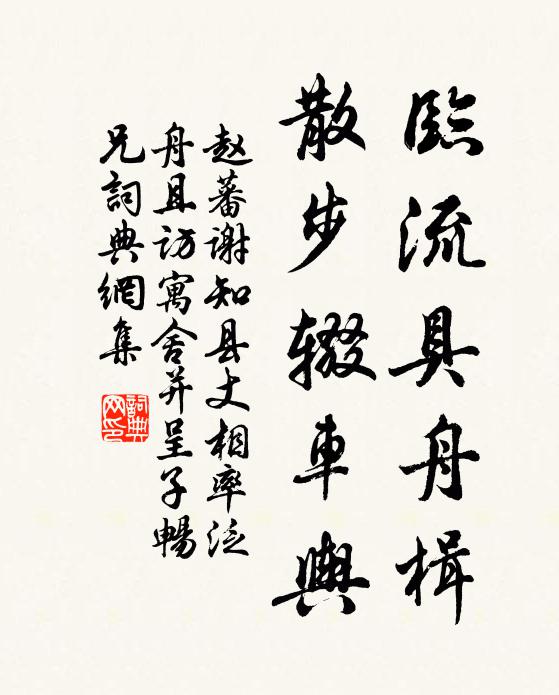 臨流具舟楫
散步辍車輿
赵蕃謝知县丈相率泛
舟且访寓舍并呈子暢
兄詞典網集
詞典
网印